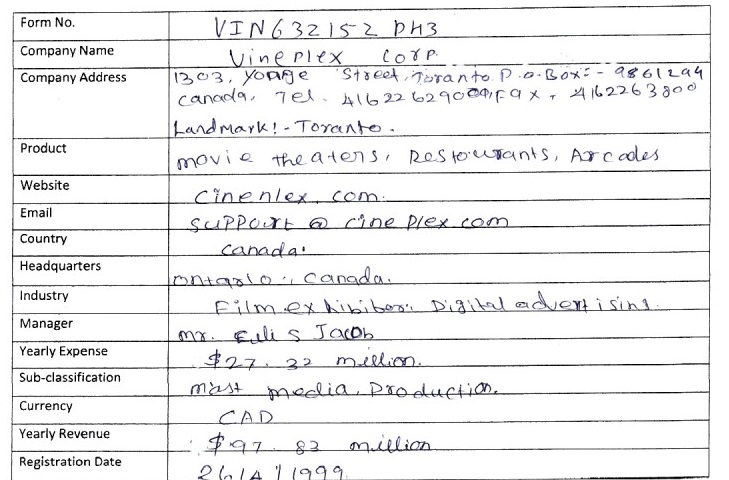 Form No. VIN632152 DH3
Company Name Vineplex Corp.
Company Address 1303, Yonge Street, Toranto P.O.Box:- 9861294
Canada, Tel. 4162262900, Fax, 4162263800
Landmark:- Toranto.
Product movie theaters, Restourants, Arcades
Website cinenlex.com.
Email support@cineplex.com
Country Canada.
Headquarters ontario., Canada.
Industry Film exhibiber, Digital advertising.
Manager mr. S Jacob
Yearly Expense $27.32 million.
Sub-classification mast media, Production.
Currency CAD
Yearly Revenue $97.83 million
Registration Date 1999